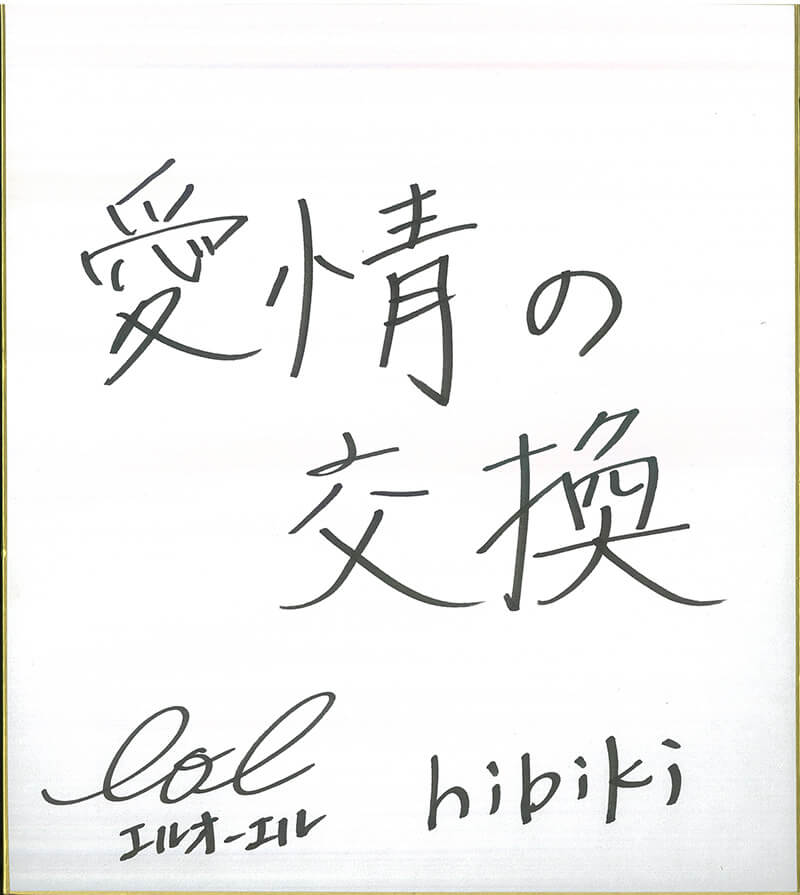 愛情の
交換
lol
エルオーエル
hibiki